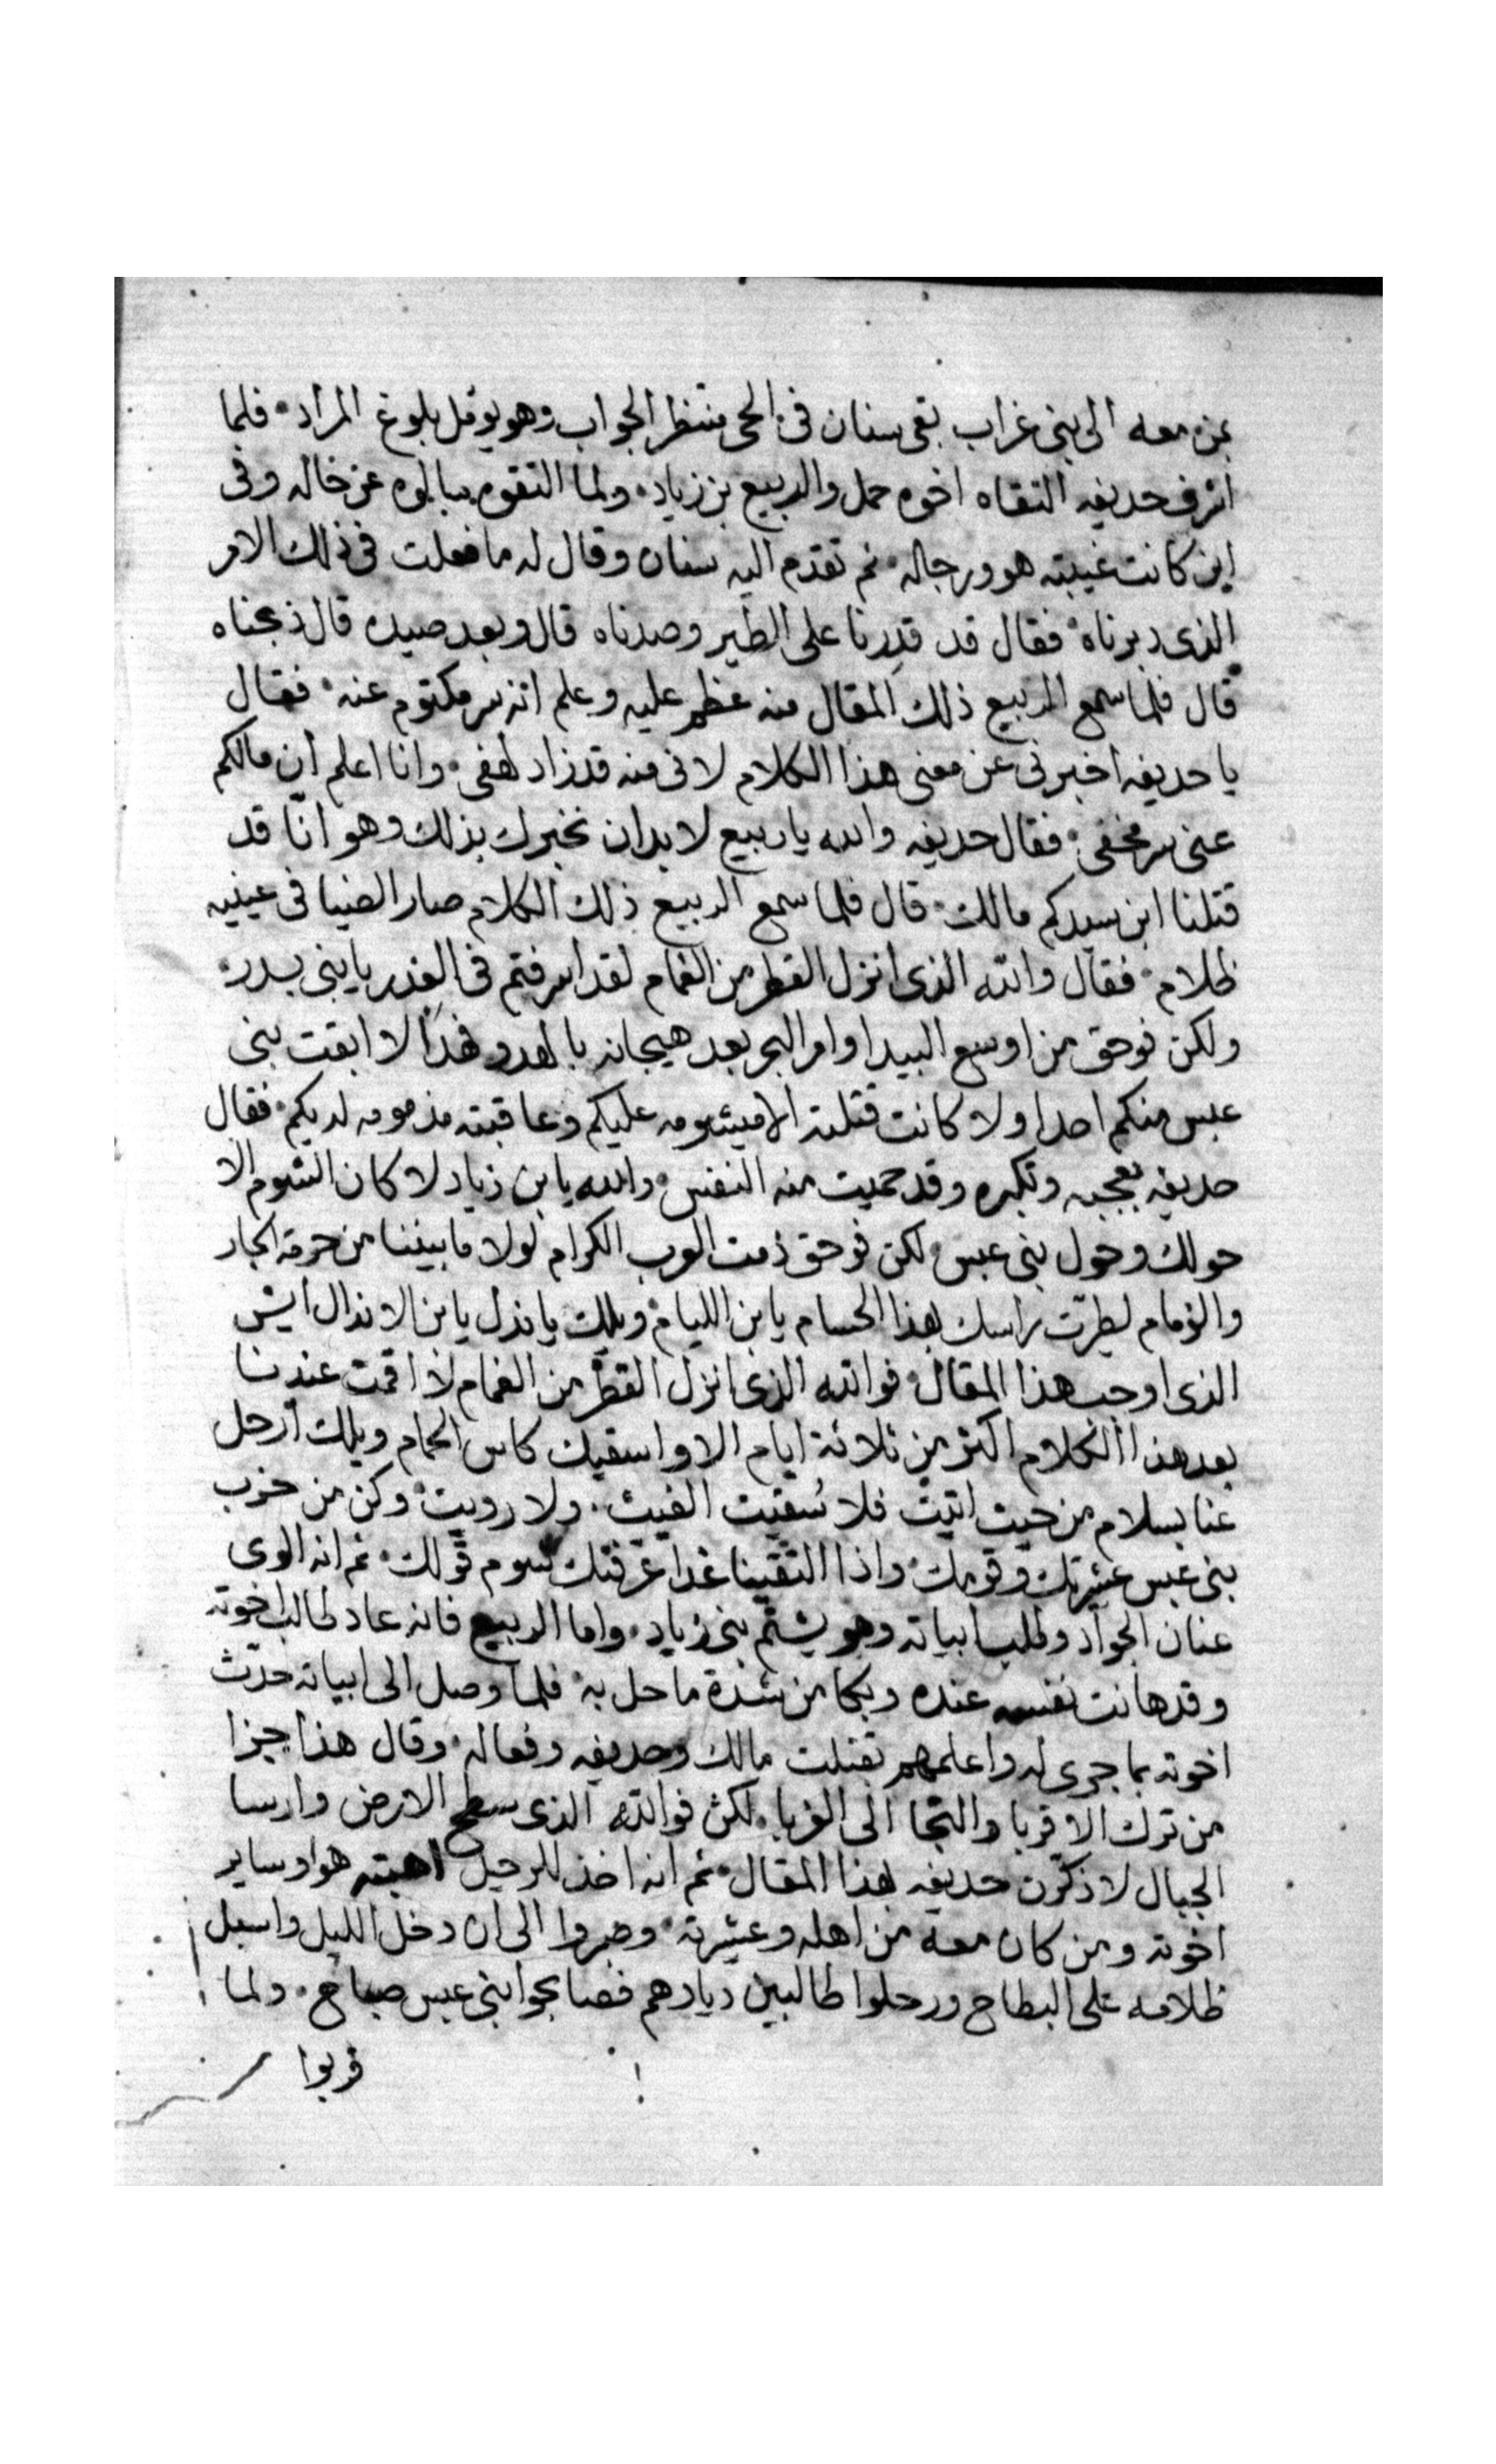 بمن معه الى بنى غراب بقى سنان فى الحى منتظر الجواب وهو يوئمل بلوغ المراد۰ فلما
اشرف حديفه التقاه اخوه حمل والربيع بن زياد۰ ولما التقوه يسالوه عن حاله وفى
اين كانت غيبته هو ورجاله۰ ثم تقدم اليه سنان وقال له ما فعلت فى ذلك الامر
الذى دبرناه۰ فقال قد قدرنا على الطير وصدناه قال وبعد صيده قال ذبحناه
قال فلما سمع الربيع ذلك المقال منه عظم عليه وعلم انه سر مكتوم عنه۰ فقال
يا حديفه اخبرنى عن معنى هذا الكلام لانى منه قد زاد لهفى۰ وانا اعلم ان مالكم
عنى سر مخفى۰ فقال حديفه والله يا ربيع لا بد ان نخبرك بذلك وهو انّا قد
قتلنا ابن سيدكم مالك۰ قال فلما سمع الربيع ذلك الكلام صار الضيا فى عينيه
ظلام۰ فقال والله الذى انزل القطر من الغمام لقد اسرفتم فى الغدر يا بنى بدر۰
ولكن فوحق من اوسع البيدا وامر البحر بعد هيجانه بالهدو فهذا لا ابقت بنى
عبس منكم احدا ولا كانت قتلته الا ميشومه عليكم وعاقبته مذمومه لديكم۰ فقال
حديفه بعجبه وتكبره وقد حميت منه النفس۰ والله يا بن زياد لا كان الشوم الا
حولك وحول بنى عبس لكن فوحق ذمت العرب الكرام لولا ما بيننا من حرمة الجار
والزمام لطيرّت راسك بهذا الحسام يا بن الليام۰ ويلك يا نذل يا بن الاندال ايش
الذى اوجب هذا المقال۰ فوالله الذى انزل القطر من الغمام لا اقمت عندنا
بعد هذا الكلام اكثر من ثلاثة ايام الا واسقيك كاس الحمام ويلك ارحل
عنا بسلام من حيت اتيت فلا سُقيت الغيث۰ ولا رويت۰ وكن من حزب
بنى عبس عشيرتك وقومك۰ واذا التقينا غدا عرّفتك شوم قولك۰ ثم انه الوى
عنان الجواد وطلب ابياته وهو يشتم بنى زياد۰ واما الربيع فانه عاد طالب اخوته
وقد هانت نفسه عنده وبكا من شدة ما حل به۰ فلما وصل الى ابياته حدّث
اخوته بما جرى له واعلمهم بقتلت مالك وحديفه وفعاله۰ وقال هذا جزا
من ترك الاقربا والتجا الى الغربا۰ لكن فوالله الذى سطح الارض وارسا
الجبال لا ذكّرن حديفه بهذا المقال۰ ثم انه اخذ للرحيل اهبته هو وساير
اخوته ومن كان معه من اهله وعشيرته۰ وصبروا الى ان دخل الليل واسبل
ظلامه على البطاح ورحلوا طالبين ديارهم فصابحوا بنى عبس صباح۰ ولما
قربوا